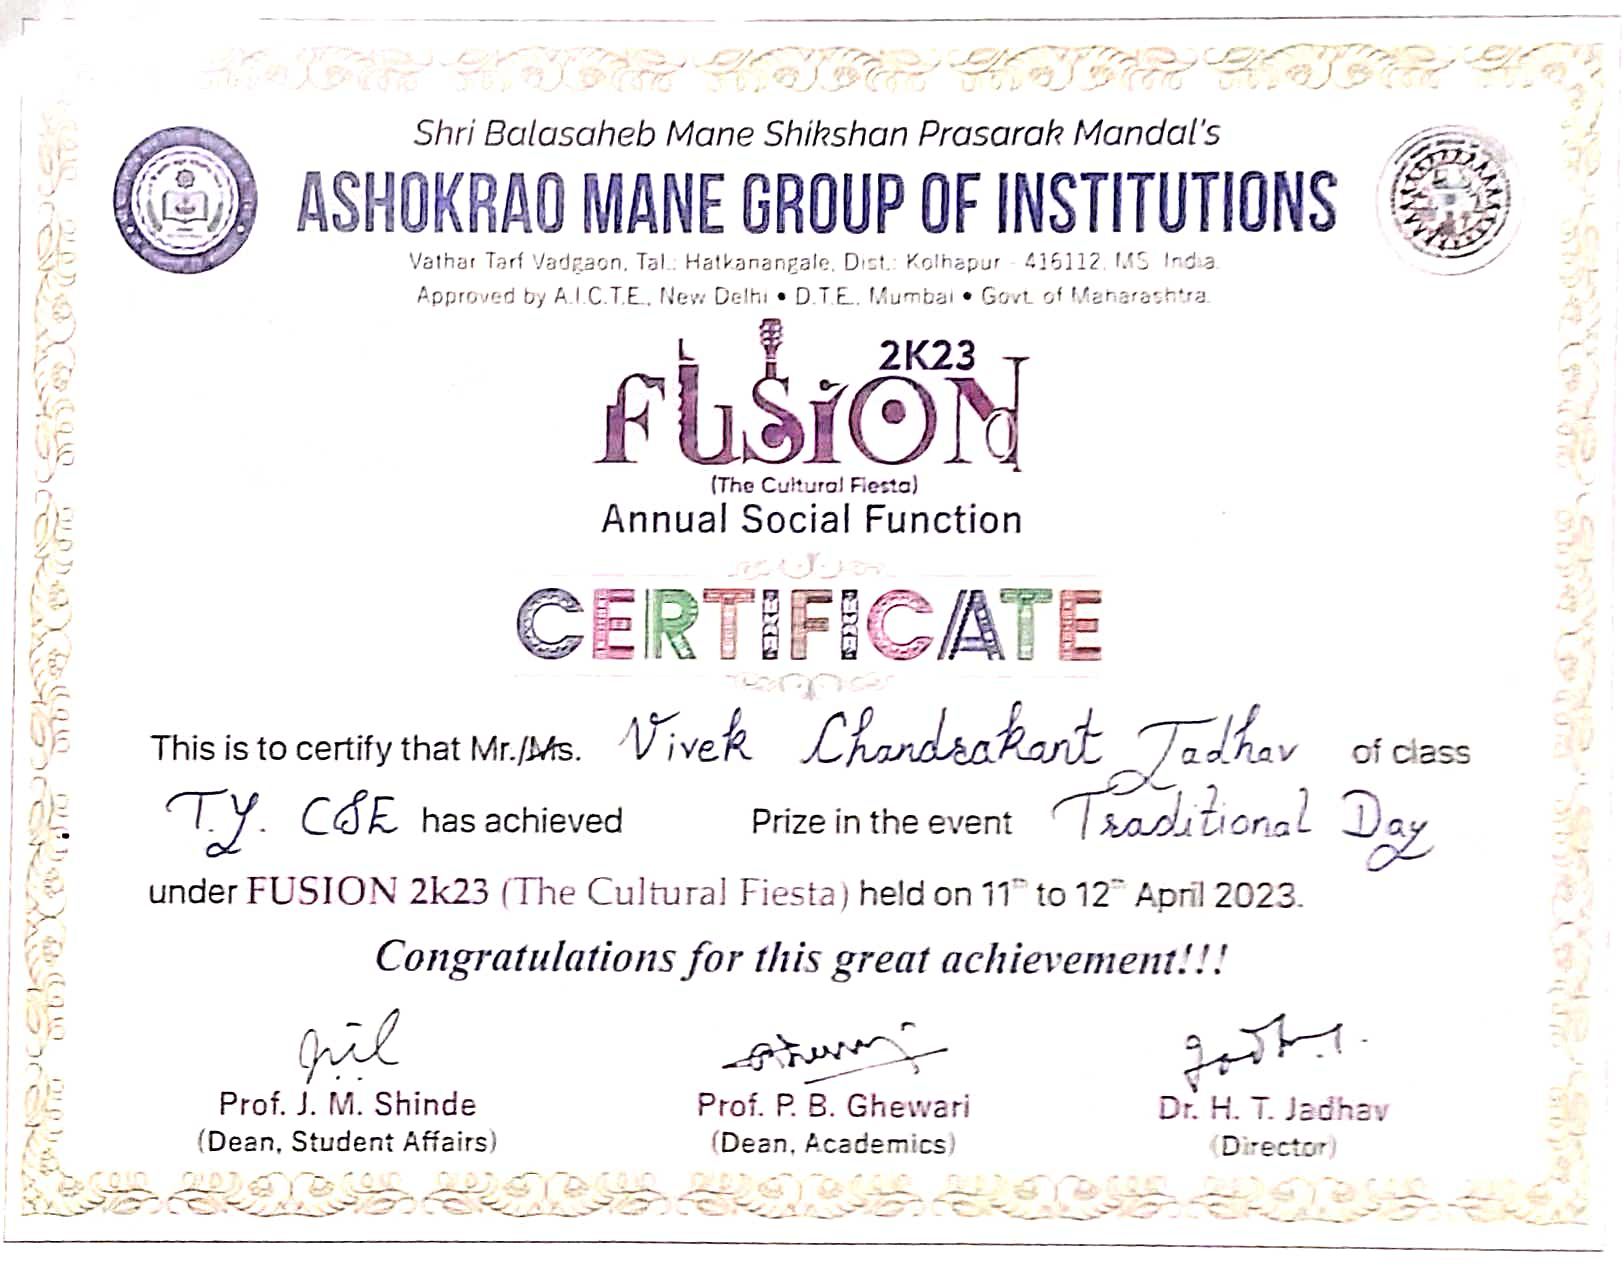 Shri Balasaheb Mane Shikshan Prasarak Mandal's
ASHOKRAO MANE GROUP OF INSTITUTIONS
Vathar Tarf Vadgaon, Tal.: Hatkanangale, Dist.: Kolhapur - 416112, MS India.
Approved by A.I.C.T.E., New Delhi • D.T.E., Mumbai • Govt. of Maharashtra.
2K23
FUSION
(The Cultural Fiesta)
Annual Social Function
CERTIFICATE
This is to certify that Mr./Ms. Vivek Chandrakant Jadhav of class
T.Y. CSE has achieved Prize in the event Traditional Day
under FUSION 2k23 (The Cultural Fiesta) held on 11th to 12th April 2023.
Congratulations for this great achievement!!!
Prof. J. M. Shinde Prof. P. B. Ghewari Dr. H. T. Jadhav
(Dean, Student Affairs) (Dean, Academics) (Director)